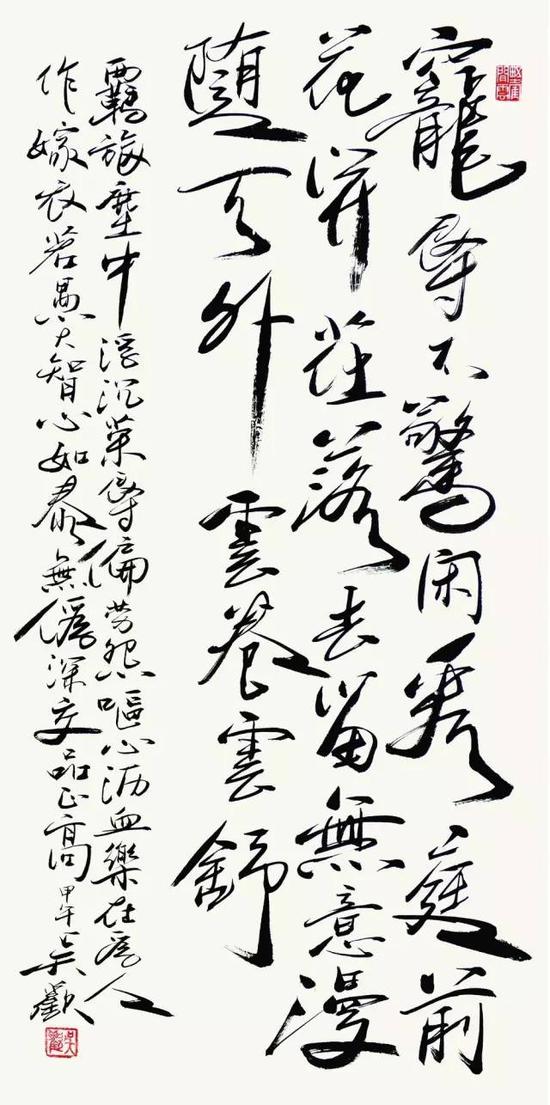 寵辱不驚閑看庭前
花開花落去留無意漫
隨天外雲卷雲舒
羈旅塵中浮沉榮辱偏勞怨嘔心沥血樂在為人
作嫁衣若愚大智心如泰無偽深交品正高甲午吳歡